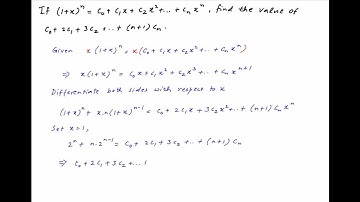 If (1+x)ⁿ = C₀ + C₁x + C₂x² + ... + Cₙxⁿ, find the value of
C₀ + 2C₁ + 3C₂ + .. + (n+1) Cₙ.
Given x(1+x)ⁿ = x(C₀ + C₁x + C₂x² + .. + Cₙxⁿ)
⇒ x(1+x)ⁿ = C₀x + C₁x² + C₂x³ + .. + Cₙxⁿ⁺¹
Differentiate both sides with respect to x
(1+x)ⁿ + x.n(1+x)ⁿ⁻¹ = C₀ + 2C₁x + 3C₂x² .. + (n+1) Cₙxⁿ
Set x=1,
2ⁿ + n.2ⁿ⁻¹ = C₀ + 2C₁ + 3C₂ + .. + (n+1) Cₙ
⇒ C₀ + 2C₁ + 3C₂ + ... 1